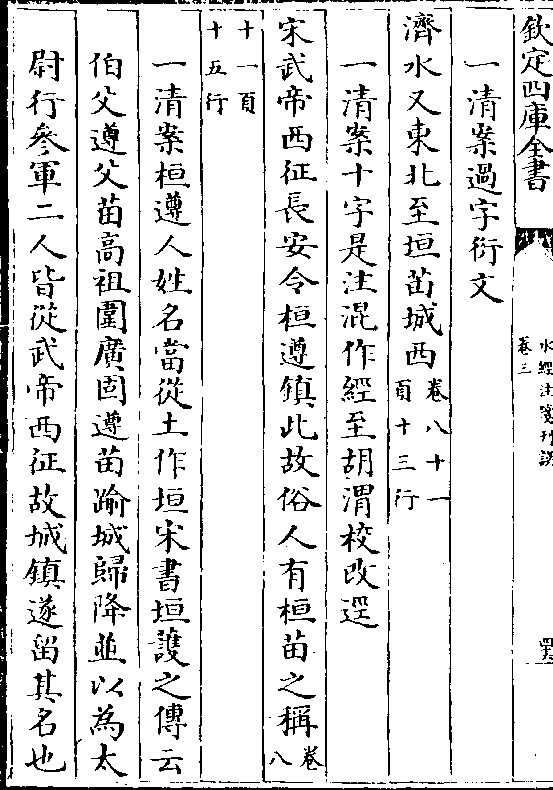 欽定四庫全書
水經注箋刊誤
卷三
一清案過字衍文
濟水又東北至垣苗城西卷八十一
頁十三行
一清案十字是注混作經至胡渭校改逕
宋武帝西征長安令桓遵鎮此故俗人有桓苗之稱卷八
十一頁
十五行
一清案桓遵人姓名當從土作垣宋書垣護之傳云
伯父遵父苗高祖圍廣固遵苗踰城歸降並以為太
尉行參軍二人皆從武帝西征故城鎮遂留其名也